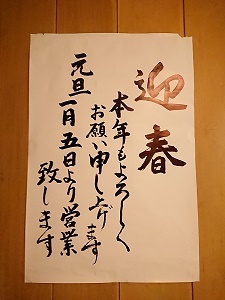 迎春
本年もよろしく
お願い申し上げます
元旦一月五日より営業
致します